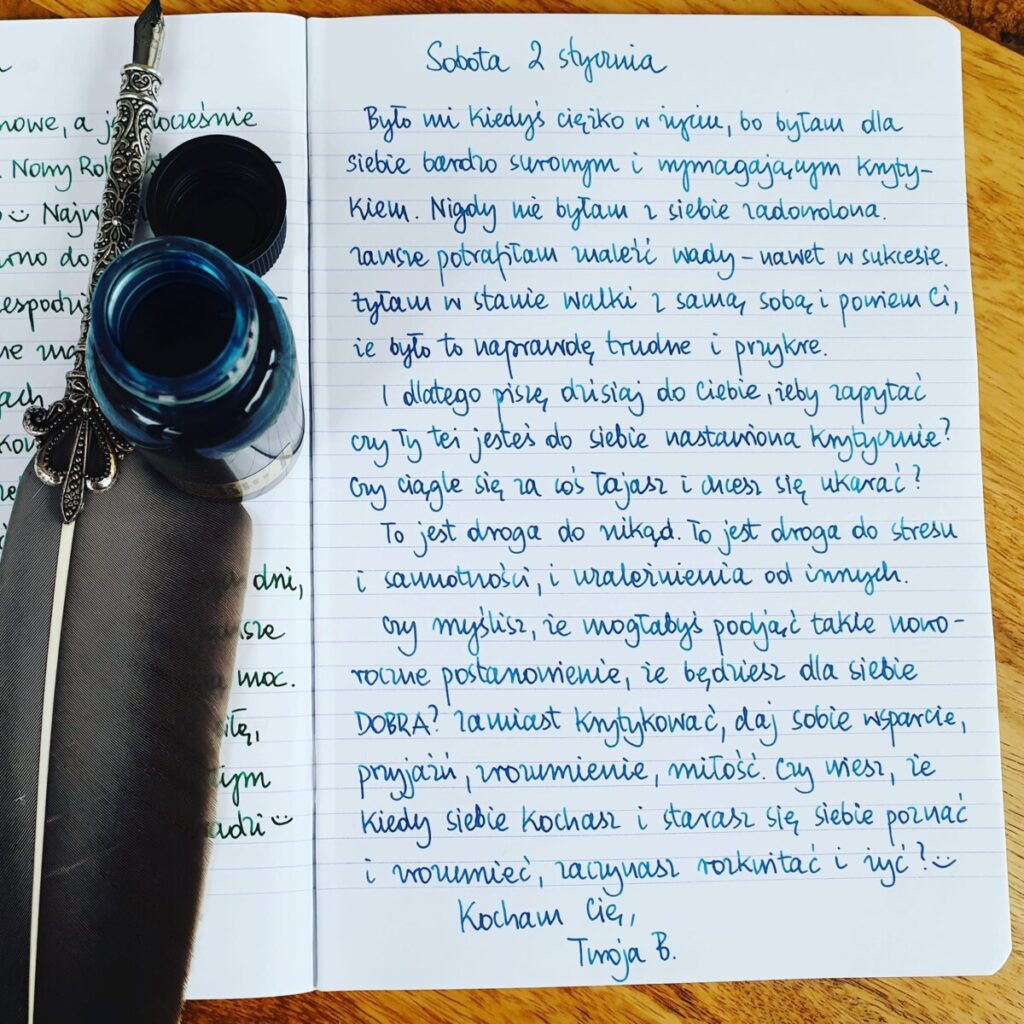 nowe, a je
ocześnie
Nowy Rok
st
Najw
wno do
espodzi
ne ma
gach
kow
dni,
wsze
moc.
łę,
tym
adzi
Sobota 2 stycznia
Było mi kiedyś ciężko w życiu, bo byłam dla
siebie bardzo surowym i wymagającym kryty-
kiem. Nigdy nie byłam z siebie zadowolona.
Zawsze potrafiłam znaleźć wady - nawet w sukcesie.
Żyłam w stanie walki z samą sobą i powiem Ci,
że było to naprawdę trudne i przykre.
I dlatego piszę dzisiaj do Ciebie, żeby zapytać
czy Ty też jesteś do siebie nastawiona krytycznie?
Czy ciągle się za coś łajasz i chcesz się ukarać?
To jest droga do nikąd. To jest droga do stresu
i samotności, i uzależnienia od innych.
Czy myślisz, że mogłabyś podjąć takie nowo-
roczne postanowienie, że będziesz dla siebie
DOBRA? Zamiast krytykować, daj sobie wsparcie,
przyjaźń, zrozumienie, miłość. Czy wiesz, że
kiedy siebie kochasz i starasz się siebie poznać
i zrozumieć, zaczynasz rozkwitać i żyć? :)
Kocham Cię,
Twoja B.